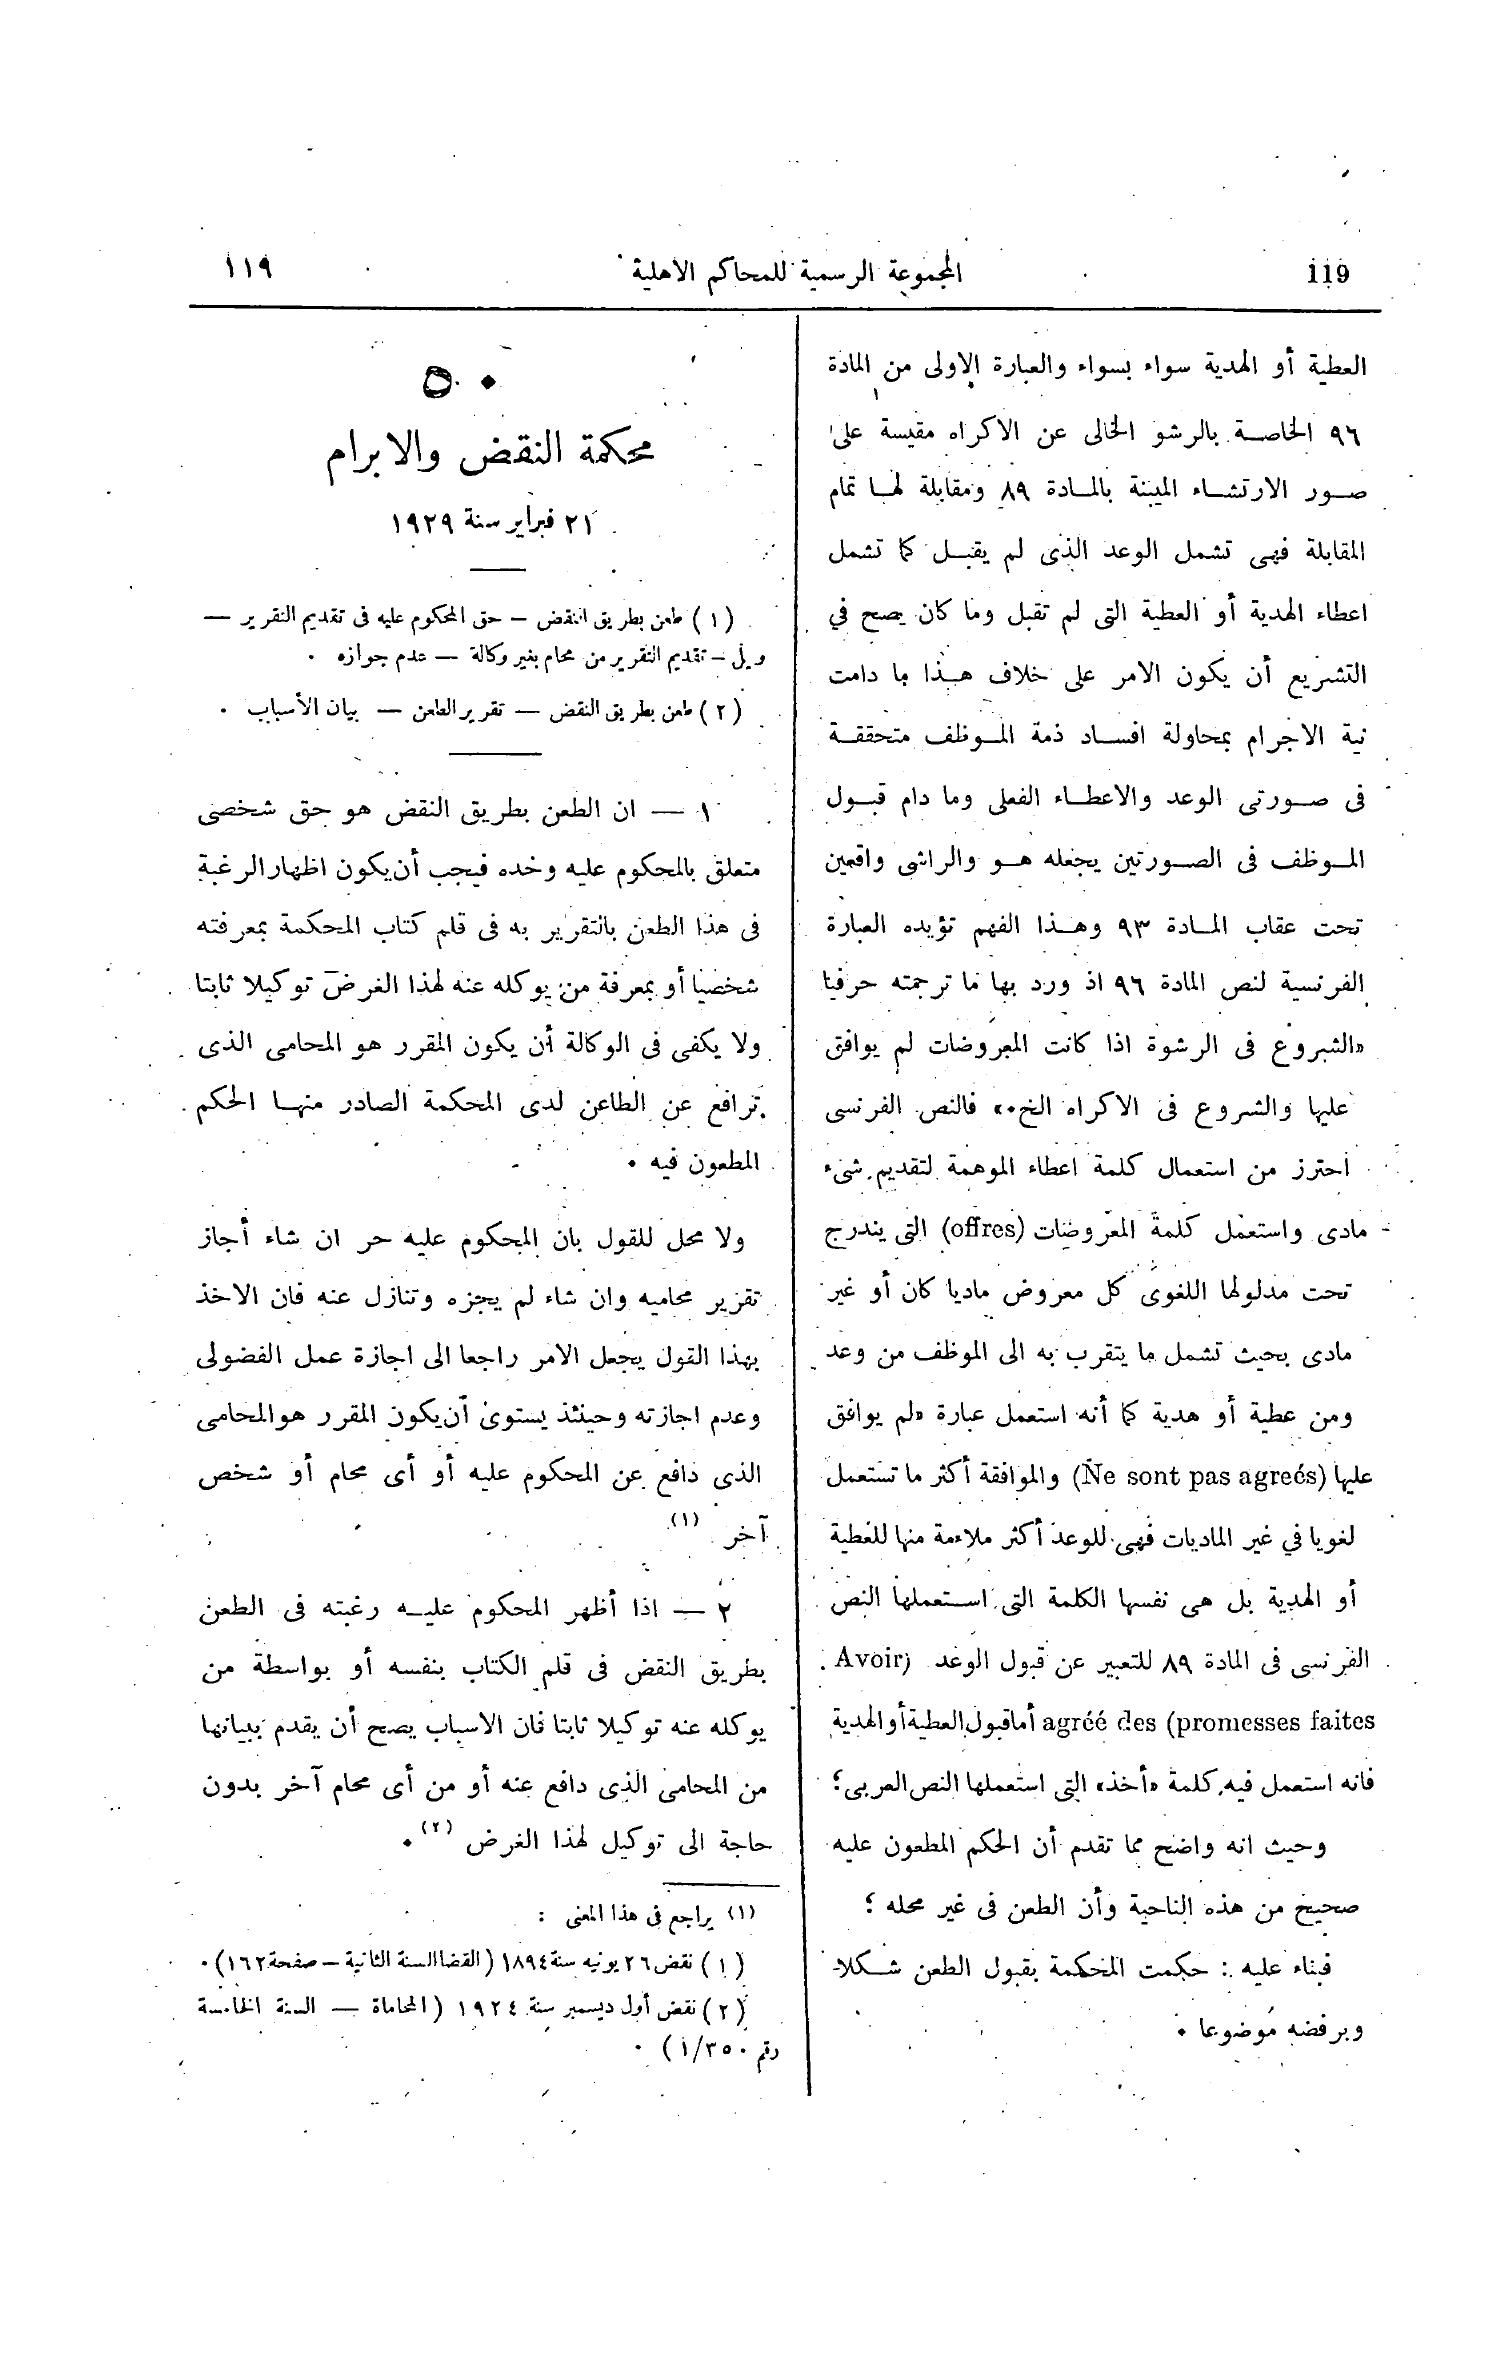 119
المجموعة الرسمية للمحاكم الأهلية
١١٩
العطية أو الهدية سواء بسواء والعبارة الاولى من المادة
٩٦ الخاصة بالرشو الخالى عن الاكراه مقيسة على
صور الارتشاء المبينة بالمادة ٨٩ ومقابلة لها تمام
المقابلة فهى تشمل الوعد الذى لم يقبل كما تشمل
اعطاء الهدية أو العطية التى لم تقبل وما كان يصح في
التشريع أن يكون الامر على خلاف هذا ما دامت
نية الاجرام بمحاولة افساد ذمة الموظف متحققة
فى صورتى الوعد والاعطاء الفعلى وما دام قبول
الموظف فى الصورتين يجعله هو والراشى واقعين
تحت عقاب المادة ٩٣ وهذا الفهم تؤيده العبارة
الفرنسية لنص المادة ٩٦ اذ ورد بها ما ترجمته حرفيا
«الشروع فى الرشوة اذا كانت المعروضات لم يوافق
عليها والشروع فى الاكراه الخ.» فالنص الفرنسى
احترز من استعمال كلمة اعطاء الموهمة لتقديم شىء
مادى واستعمل كلمة المعروضات (offres) التى يندرج
تحت مدلولها اللغوى كل معروض ماديا كان أو غير
مادى بحيث تشمل ما يتقرب به الى الموظف من وعد
ومن عطية أو هدية كما أنه استعمل عبارة «لم يوافق
عليها (Ne sont pas agreés) والموافقة أكثر ما تستعمل
لغويا في غير الماديات فهى للوعد أكثر ملاءمة منها للعطية
أو الهدية بل هى نفسها الكلمة التى استعملها النص
الفرنسى فى المادة ٨٩ للتعبير عن قبول الوعد (Avoir
agréé des (promesses faites أما قبول العطية أو الهدية
فانه استعمل فيه كلمة «أخذ» التى استعملها النص العربى؛
وحيث انه واضح مما تقدم أن الحكم المطعون عليه
صحيح من هذه الناحية وأن الطعن فى غير محله ؛
فبناء عليه : حكمت المحكمة بقبول الطعن شكلا
وبرفضه موضوعا .
٥٠
محكمة النقض والابرام
٢١ فبراير سنة ١٩٢٩
(١) طعن بطريق النقض — حق المحكوم عليه فى تقديم التقرير —
وكيل — تقديم التقرير من محام بغير وكالة — عدم جوازه .
(٢) طعن بطريق النقض — تقرير الطعن — بيان الأسباب .
١ — ان الطعن بطريق النقض هو حق شخصى
متعلق بالمحكوم عليه وحده فيجب أن يكون اظهار الرغبة
فى هذا الطعن بالتقرير به فى قلم كتاب المحكمة بمعرفته
شخصيا أو بمعرفة من يوكله عنه لهذا الغرض توكيلا ثابتا
ولا يكفى فى الوكالة أن يكون المقرر هو المحامى الذى
ترافع عن الطاعن لدى المحكمة الصادر منها الحكم
المطعون فيه .
ولا محل للقول بان المحكوم عليه حر ان شاء أجاز
تقرير محاميه وان شاء لم يجزه وتنازل عنه فان الاخذ
بهذا القول يجعل الامر راجعا الى اجازة عمل الفضولى
وعدم اجازته وحينئذ يستوى أن يكون المقرر هو المحامى
الذى دافع عن المحكوم عليه أو أى محام أو شخص
آخر (١)
٢ — اذا أظهر المحكوم عليه رغبته فى الطعن
بطريق النقض فى قلم الكتاب بنفسه أو بواسطة من
يوكله عنه توكيلا ثابتا فان الاسباب يصح أن يقدم ببيانها
من المحامى الذى دافع عنه أو من أى محام آخر بدون
حاجة الى توكيل لهذا الغرض (٢).
(١) يراجع فى هذا المعنى :
(١) نقض ٢٦ يونيه سنة ١٨٩٤ (القضا السنة الثانية — صفحة ١٦٢) .
(٢) نقض أول ديسمبر سنة ١٩٢٤ (المحاماة — السنة الخامسة
رقم ١/٣٥٠) .